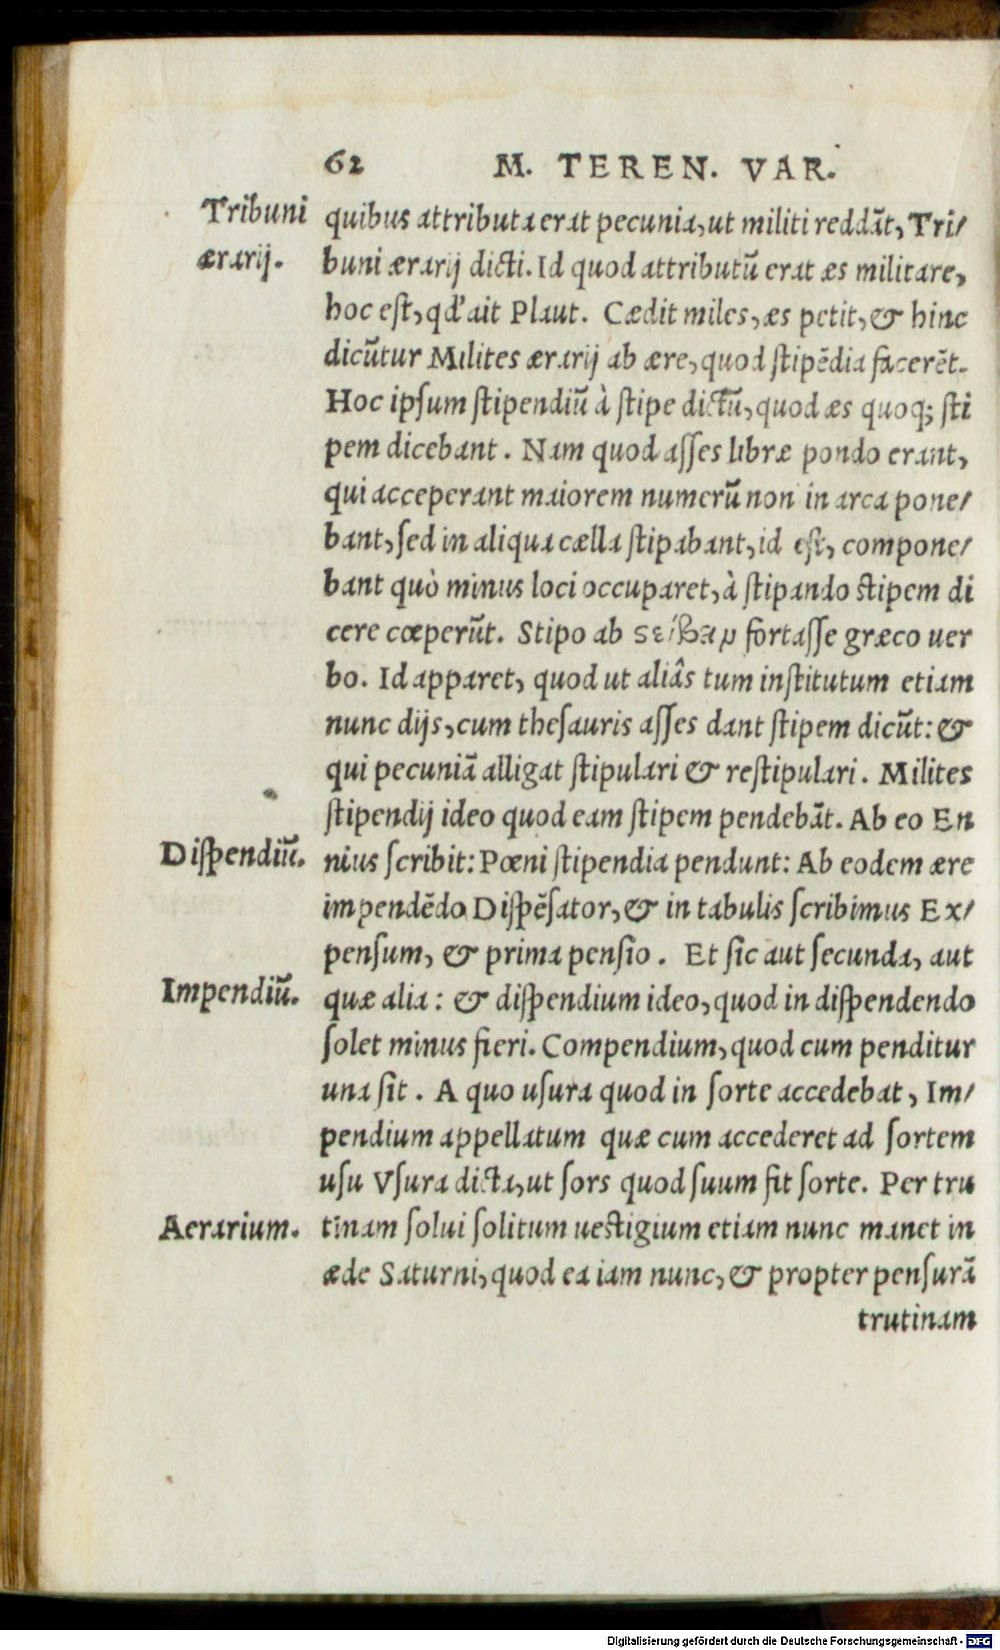 62 M. TEREN. VAR.
Tribuni
ærarij.
quibus attributa erat pecunia, ut militi reddāt, Tri/
buni ærarij dicti. Id quod attributū erat æs militare,
hoc eſt, qď ait Plaut. Cædit miles, æs petit, & hinc
dicūtur Milites ærarij ab ære, quod ſtipēdia facerēt.
Hoc ipſum ſtipendiū à ſtipe dictū, quod æs quoq; ſti
pem dicebant. Nam quod aſſes libræ pondo erant,
qui acceperant maiorem numerū non in arca pone/
bant, ſed in aliqua cælla ſtipabant, id eſt, compone/
bant quò minus loci occuparet, à ſtipando ſtipem di
cere cœperūt. Stipo ab fortaſſe græco uer
bo. Id apparet, quod ut aliâs tum inſtitutum etiam
nunc dijs, cum theſauris aſſes dant ſtipem dicūt: &
qui pecuniā alligat ſtipulari & reſtipulari. Milites
ſtipendij ideo quod eam ſtipem pendebāt. Ab eo En
Diſpendiū.
nius ſcribit: Pœni ſtipendia pendunt: Ab eodem ære
impendēdo Diſpēſator, & in tabulis ſcribimus Ex/
penſum, & prima penſio. Et ſic aut ſecunda, aut
Impendiū.
quæ alia: & diſpendium ideo, quod in diſpendendo
ſolet minus fieri. Compendium, quod cum penditur
una ſit. A quo uſura quod in ſorte accedebat, Im/
pendium appellatum quæ cum accederet ad ſortem
uſu Vſura dicta, ut ſors quod ſuum fit ſorte. Per tru
Aerarium.
tinam ſolui ſolitum ueſtigium etiam nunc manet in
æde Saturni, quod ea iam nunc, & propter penſurā
trutinam
Digitalisierung gefördert durch die Deutsche Forschungsgemeinschaft - DFG